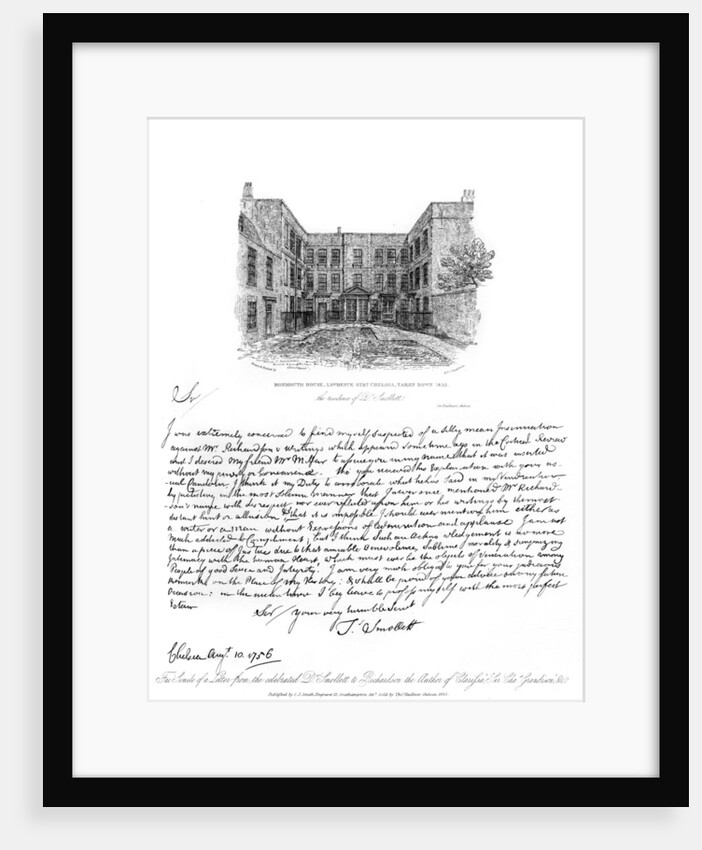 MONMOUTH HOUSE, LAWRENCE STRT CHELSEA, TAKEN DOWN 1833.
the residence of Dr. Smollett.
Sir
I was extremely concerned to find myself suspected of a silly mean Insinuation
against Mr. Richardson's Writings which appeared some time ago in the Critical Review
and I desired my friend Mr. Millar to assure you in my name that it was inserted
without my privity or Concurrence. Tho' you received this Explanation with your us-
ual Candour, I think it my Duty to corroborate what he has said in my Vindication
by protesting in the most Solemn manner that I never once mentioned Mr. Richard-
son's name with disrespect nor ever reflected upon him or his writings by the most
distant hint or allusion & that it is impossible I should ever mention him either as
a writer or a man without Expressions of Veneration and applause I am not
Much addicted to Compliment; but I think Such an Acknowledgement is no more
than a piece of Justice due to that amiable Benevolence, Sublime morality &
Intimacy with the human Heart, which must ever be the objects of Veneration among
People of good Sense and Integrity. I am very much obliged to you for your judicious
Remarks on the Plan of my History; & shall be proud of your advice on any future
Occasion: in the mean time I beg leave to profess myself with the most perfect
Esteem
Sir / Your very humble Servt
Ts. Smollett
Chelsea Augt. 10. 1756
Fac Simile of a Letter from the celebrated Dr. Smollett to Richardson the Author of Clarissa, Sir Chas. Grandison, &c.